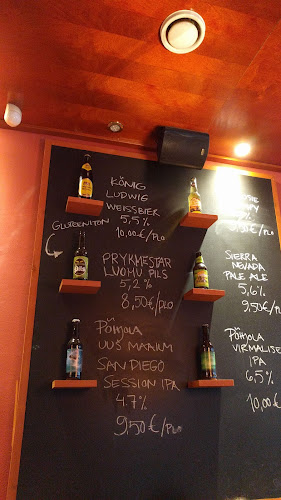 KÖNIG
LUDWIG
WEISSBIER
5,5%
10,00€/PLO
GLUTEENITON
PRYKMESTAR
LUOMU PILS
5,2%
8,50€/PLO
PÕHJOLA
UUS MAAILM
SAN DIEGO
SESSION IPA
4.7%
9,50€/PLO
SIERRA
NEVADA
PALE ALE
5,6%
9,50€/PLO
PÕHJOLA
VIRMALISE
IPA
6,5%
10,00€